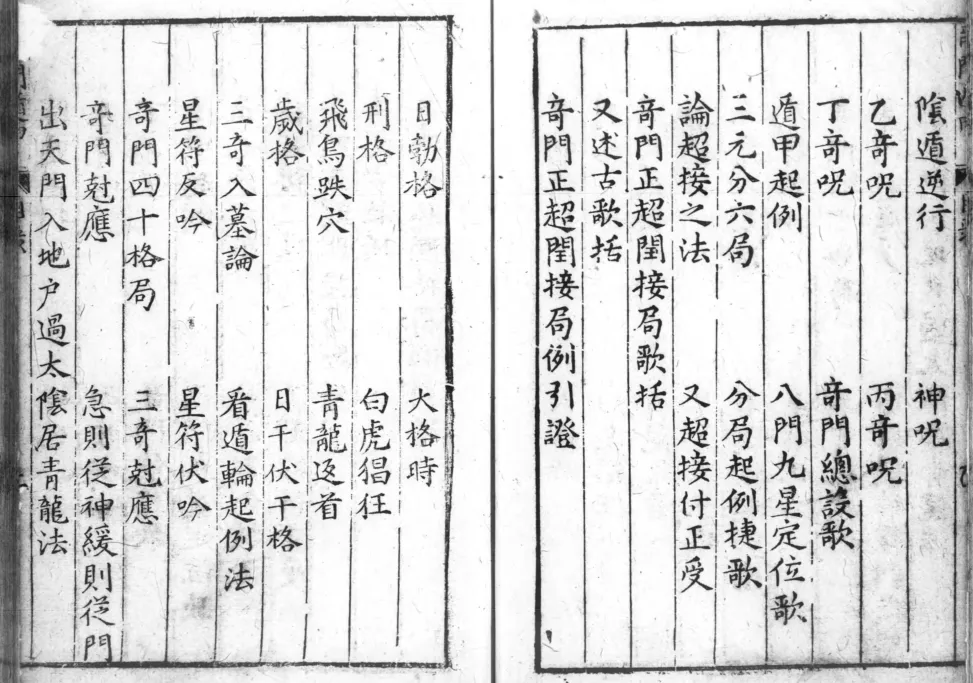 陰遁逆行 神呪
乙奇呪 丙奇呪
丁奇呪 奇門總設歌
遁甲起例 八門九星定位歌
三元分六局 分局起例捷歌
論超接之法 又超接付正受
奇門正超閏接局歌括
又述古歌括
奇門正超閏接局例引證
日勃格 大格時
刑格 白虎猖狂
飛鳥跌穴 青龍返首
歲格 日干伏干格
三奇入墓論 看遁輪起例法
星符反吟 星符伏吟
奇門四十格局 三奇尅應
奇門尅應 急則從神緩則從門
出天門入地户過太陰居青龍法